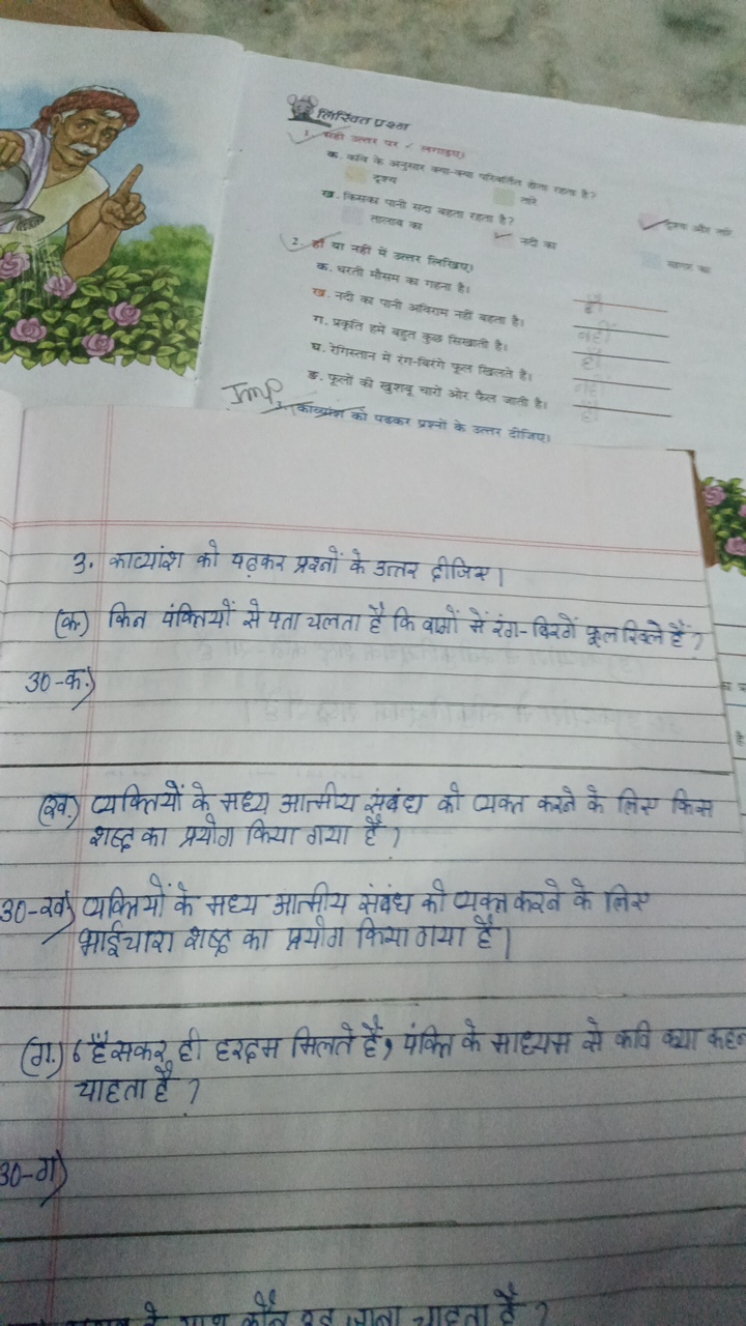 लिखित प्रश्न
1. सही उत्तर पर ✓ लगाइए।
क. कवि के अनुसार क्या-क्या परिवर्तित होता रहता है?
दृश्य
तारे
दृश्य और तारे
ख. किसका पानी सदा बहता रहता है?
तालाब का
नदी का
सागर का
2. हाँ या नहीं में उत्तर लिखिए।
क. धरती मौसम का गहना है। हाँ
ख. नदी का पानी अविराम नहीं बहता है। नहीं
ग. प्रकृति हमें बहुत कुछ सिखाती है। हाँ
घ. रेगिस्तान में रंग-बिरंगे फूल खिलते हैं। नहीं
ङ. फूलों की खुशबू चारों ओर फैल जाती है। हाँ
Imp
3. काव्यांश को पढ़कर प्रश्नों के उत्तर दीजिए।
3. काव्यांश को पढ़कर प्रश्नों के उत्तर दीजिए।
(क.) किन पंक्तियों से पता चलता है कि बागों में रंग-बिरगें फूल खिले हैं?
उ०-क.)
(ख.) व्यक्तियों के मध्य आत्मीय संबंध को व्यक्त करने के लिए किस
शब्द का प्रयोग किया गया है?
उ०-ख) व्यक्तियों के मध्य आत्मीय संबंध को व्यक्त करने के लिए
भाईचारा शब्द का प्रयोग किया गया है।
(ग.) 'हँसकर ही हरदम मिलते हैं' पंक्ति के माध्यम से कवि क्या कहना
चाहता है?
उ०-ग)
के साथ कौन रह जाना चाहता है?